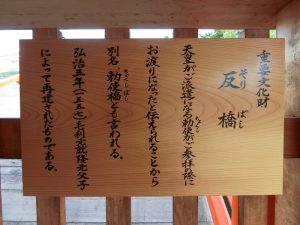 重要文化財
反橋
そり ばし
天皇がご派遣になる勅使がご参拝時に
お渡りになったと伝えられることから
別名 勅使橋とも言われる。
弘治三年(一五五七)毛利元就隆元父子
によって再造されたものである。